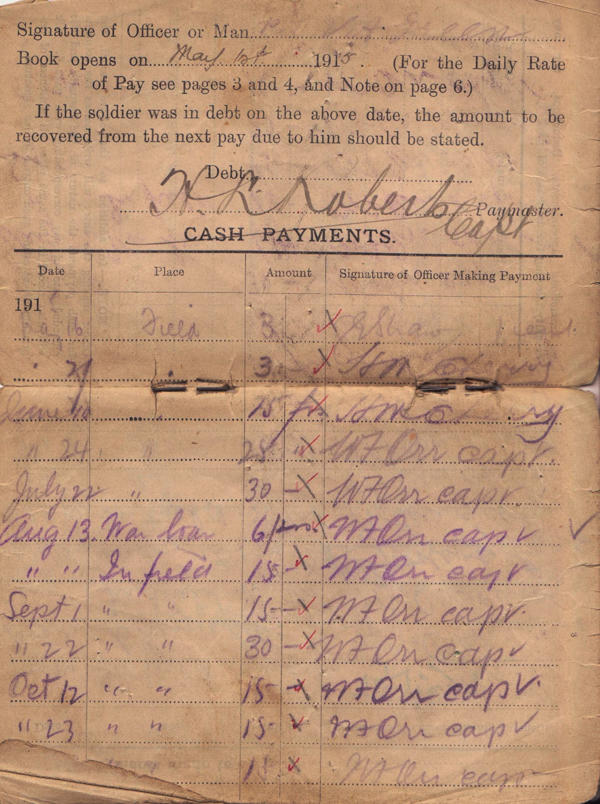 Signature of Officer or Man
Book opens on May 12th 1915. (For the Daily Rate
of Pay see pages 3 and 4, and Note on page 6.)
If the soldier was in debt on the above date, the amount to be
recovered from the next pay due to him should be stated.
Debt
Roberts Capt Paymaster.
CASH PAYMENTS.
Date Place Amount Signature of Officer Making Payment
191
16 Field 3 Shaw
" 3
June 15
" 24 " 25 " WF Orr capt.
July 22 " 30 WF Orr capt.
Aug 13. War loan 6/ WF Orr capt
" " In field 15 WF Orr capt
Sept 1 " " 15 WF Orr capt.
" 22 " " 30 WF Orr capt
Oct 12 " " 15 WF Orr capt.
" 23 " " 15 WF Orr capt
WF Orr capt